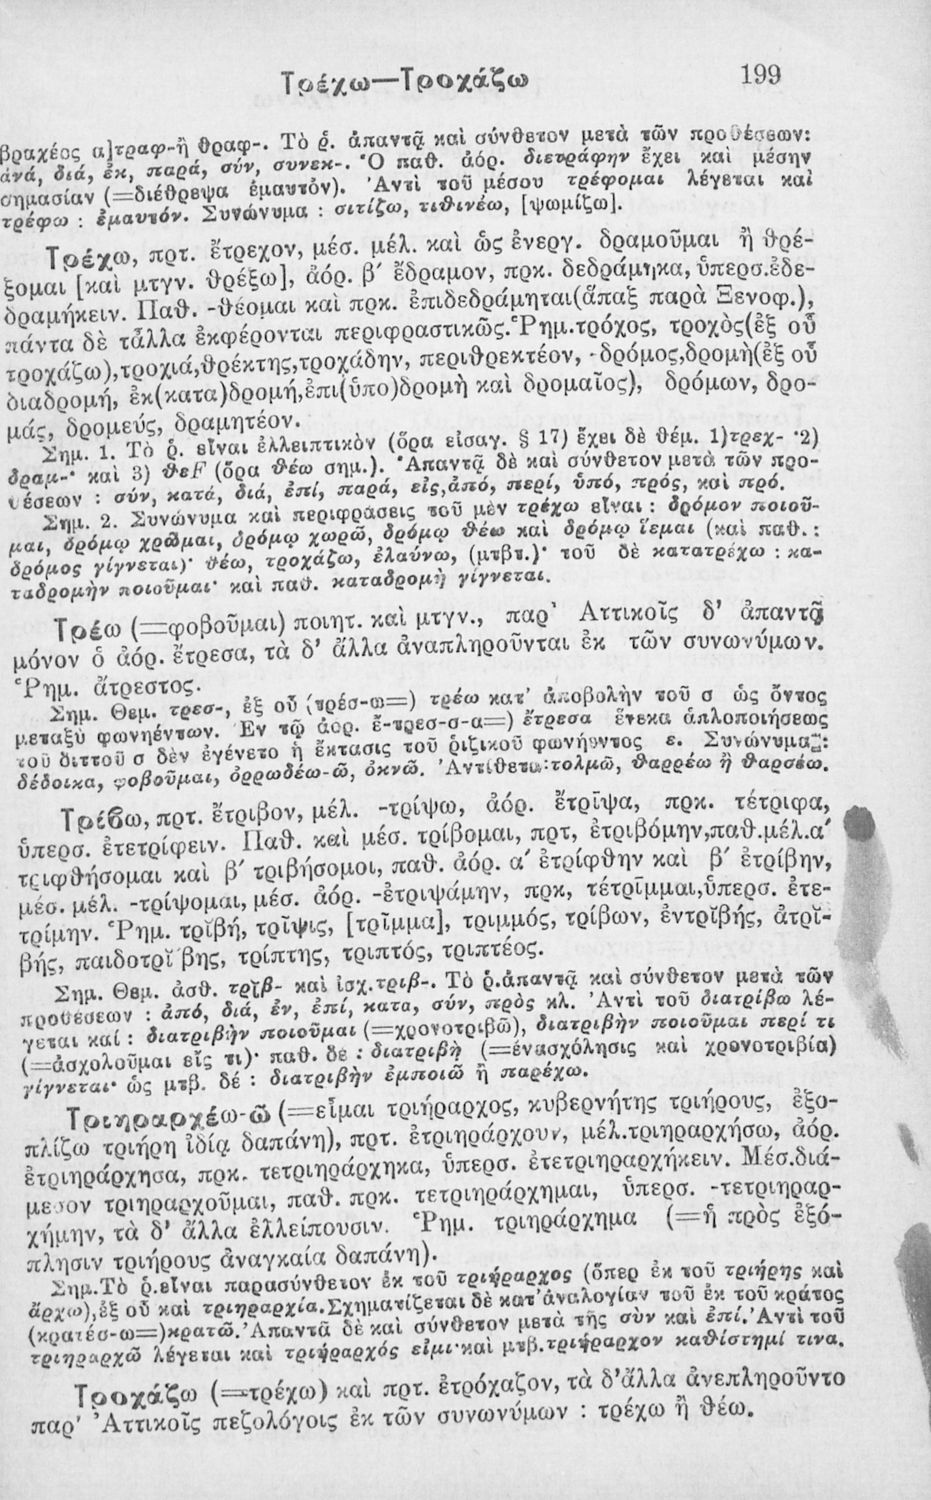 Τρέχω—Τροχάζω 199
βραχέος α]τραφ-ἢ θραφ-. Τὸ ῥ. ἀπαντᾷ καὶ σύνθετον μετὰ τῶν προθέσεων:
ἀνά, διά, ἐκ, παρά, σύν, συνεκ-. Ὁ παθ. ἀόρ. διετράφην ἔχει καὶ μέσην
σημασίαν (=διέθρεψα ἐμαυτόν). Ἀντὶ τοῦ μέσου τρέφομαι λέγεται καὶ
τρέφω : ἐμαυτόν. Συνώνυμα : σιτίζω, τιθινέω, [ψωμίζω].
Τρέχω, πρτ. ἔτρεχον, μέσ. μέλ. καὶ ὡς ἐνεργ. δραμοῦμαι ἢ θρέ-
ξομαι [καὶ μτγν. θρέξω], ἀόρ. β´ ἔδραμον, πρκ. δεδράμηκα, ὑπερσ.ἐδε-
δραμήκειν. Παθ. -θέομαι καὶ πρκ. ἐπιδεδράμηται(ἅπαξ παρὰ Ξενοφ.),
πάντα δὲ τἆλλα ἐκφέρονται περιφραστικῶς. Ῥημ.τρόχος, τροχὸς(ἐξ οὗ
τροχάζω),τροχιά,θρέκτης,τροχάδην, περιθρεκτέον, -δρόμος,δρομὴ(ἐξ οὗ
διαδρομή, ἐκ(κατα)δρομή,ἐπι(ὑπο)δρομὴ καὶ δρομαῖος), δρόμων, δρο-
μάς, δρομεύς, δραμητέον.
Σημ. 1. Τὸ ῥ. εἶναι ἐλλειπτικὸν (ὅρα εἰσαγ. § 17) ἔχει δὲ θέμ. 1)τρεχ- ·2)
δραμ-· καὶ 3) θεF (ὅρα θέω σημ.). Ἀπαντᾷ δὲ καὶ σύνθετον μετὰ τῶν προ-
θέσεων : σύν, κατά, διά, ἐπί, παρά, εἰς,ἀπό, περί, ὑπό, πρός, καὶ πρό.
Σημ. 2. Συνώνυμα καὶ περιφράσεις τοῦ μὲν τρέχω εἶναι : δρόμον ποιοῦ-
μαι, δρόμῳ χρῶμαι, δρόμῳ χωρῶ, δρόμῳ θέω καὶ δρόμῳ ἵεμαι (καὶ παθ.:
δρόμος γίγνεται)· θέω, τροχάζω, ἐλαύνω, (μτβτ.)· τοῦ δὲ κατατρέχω : κα-
ταδρομὴν ποιοῦμαι· καὶ παθ. καταδρομὴ γίγνεται.
Τρέω (=φοβοῦμαι) ποιητ. καὶ μτγν., παρ' Ἀττικοῖς δ' ἀπαντᾷ
μόνον ὁ ἀόρ. ἔτρεσα, τὰ δ' ἄλλα ἀναπληροῦνται ἐκ τῶν συνωνύμων.
Ῥημ. ἄτρεστος.
Σημ. Θεμ. τρεσ-, ἐξ οὗ (τρέσ-ω=) τρέω κατ' ἀποβολὴν τοῦ σ ὡς ὄντος
μεταξὺ φωνηέντων. Ἐν τῷ ἀορ. ἔ-τρεσ-σ-α=) ἔτρεσα ἕνεκα ἁπλοποιήσεως
τοῦ διττοῦ σ δὲν ἐγένετο ἡ ἔκτασις τοῦ ῥιζικοῦ φωνήεντος ε. Συνώνυμα:
δέδοικα, φοβοῦμαι, ὀρρωδέω-ῶ, ὀκνῶ. Ἀντίθετα:τολμῶ, θαρρέω ἢ θαρσέω.
Τρίβω, πρτ. ἔτριβον, μέλ. -τρίψω, ἀόρ. ἔτριψα, πρκ. τέτριφα,
ὑπερσ. ἐτετρίφειν. Παθ. καὶ μέσ. τρίβομαι, πρτ, ἐτριβόμην,παθ.μέλ.α´
τριφθήσομαι καὶ β´ τριβήσομαι, παθ. ἀόρ. α´ ἐτρίφθην καὶ β´ ἐτρίβην,
μέσ. μέλ. -τρίψομαι, μέσ. ἀόρ. -ἐτριψάμην, πρκ, τέτρῖμμαι,ὑπερσ. ἐτε-
τρίμην. Ῥημ. τρῐβή, τρῖψις, [τρῖμμα], τριμμός, τρίβων, ἐντρῐβής, ἀτρῐ-
βής, παιδοτρῐβης, τρίπτης, τριπτός, τριπτέος.
Σημ. Θεμ. ἀσθ. τρῐβ- καὶ ἰσχ.τριβ-. Τὸ ῥ.ἀπαντᾷ καὶ σύνθετον μετὰ τῶν
προθέσεων : ἀπό, διά, ἐν, ἐπί, κατα, σύν, πρὸς κλ. Ἀντὶ τοῦ διατρίβω λέ-
γεται καί : διατριβὴν ποιοῦμαι (=χρονοτριβῶ), διατριβὴν ποιοῦμαι περί τι
(=ἀσχολοῦμαι εἴς τι)· παθ. δὲ : διατριβὴ (=ἐνασχόλησις καὶ χρονοτριβία)
γίγνεται· ὡς μτβ. δέ : διατριβὴν ἐμποιῶ ἢ παρέχω.
Τριηραρχέω-ῶ (=εἶμαι τριήραρχος, κυβερνήτης τριήρους, ἐξο-
πλίζω τριήρη ἰδίᾳ δαπάνῃ), πρτ. ἐτριηράρχουν, μέλ.τριηραρχήσω, ἀόρ.
ἐτριηράρχησα, πρκ. τετριηράρχηκα, ὑπερσ. ἐτετριηραρχήκειν. Μέσ.διά-
μεσον τριηραρχοῦμαι, παθ. πρκ. τετριηράρχημαι, ὑπερσ. -τετριηραρ-
χήμην, τὰ δ' ἄλλα ἐλλείπουσιν. Ῥημ. τριηράρχημα (=ἡ πρὸς ἐξό-
πλησιν τριήρους ἀναγκαία δαπάνη).
Σημ.Τὸ ῥ.εἶναι παρασύνθετον ἐκ τοῦ τριήραρχος (ὅπερ ἐκ τοῦ τριήρης καὶ
ἄρχω),ἐξ οὗ καὶ τριηραρχία.Σχηματίζεται δὲ κατ'ἀναλογίαν τοῦ ἐκ τοῦ κράτος
(κρατέσ-ω=)κρατῶ. Ἀπαντᾷ δὲ καὶ σύνθετον μετὰ τῆς σὺν καὶ ἐπί. Ἀντὶ τοῦ
τριηραρχῶ λέγεται καὶ τριήραρχός εἰμι·καὶ μτβ.τριήραρχον καθίστημί τινα.
Τροχάζω (=τρέχω) καὶ πρτ. ἐτρόχαζον, τὰ δ'ἄλλα ἀνεπληροῦντο
παρ' Ἀττικοῖς πεζολόγοις ἐκ τῶν συνωνύμων : τρέχω ἢ θέω.